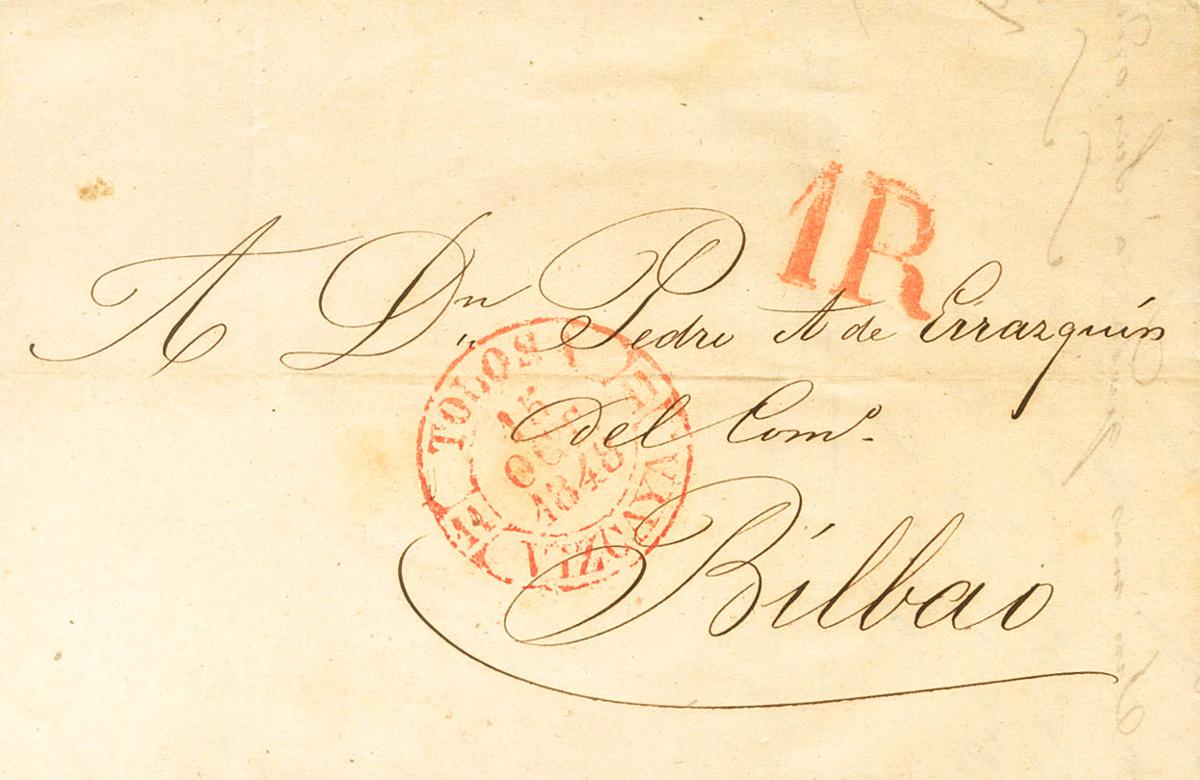 1R
A Dn Pedro A de Errazquin
del Como.
Bilbao
TOLOSA
15
OCT
1848
VIZCAYA